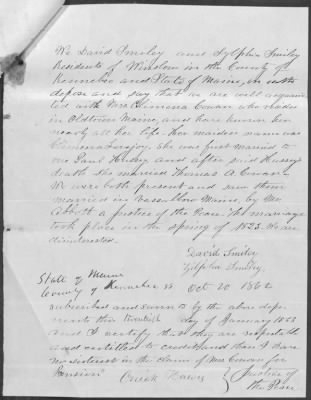 We David Smiley and Sylphia Smiley
Residents of Winslow in the County of
Kennebec and State of Maine, on oath
depose and say that we are well acquain
ted with Mrs Climena Cowan who resides
in Oldtown Maine, and have known her
nearly all her life. Her maiden name was
Climena Lovejoy. She was first married to
Mr Paul Hussey and after said Hussey's
death she married Thomas A Cowan
We were both present and saw them
married in Vassalboro Maine, by Mr
Abbott a Justice of the Peace. The marriage
took place in the spring of 1823. We are
disinterested.
David Smiley
Sylphia Smiley
State of Maine
County of Kennebec ss Oct 20 1862
subscribed and sworn to by the above depo
nents this twentieth day of January 1863
and I certify that they are reputable
and entitled to credit and that I have
no interest in the claim of Mrs Cowan for
Pension
Justice of
the Peace